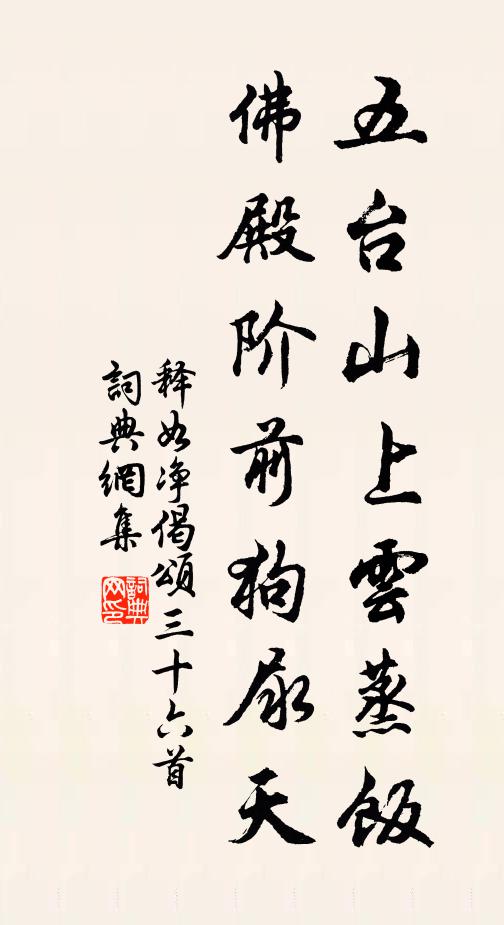 五台山上雲蒸飯
佛殿阶前狗尿天
释如净偈頌三十六首
詞典網集
詞典网印